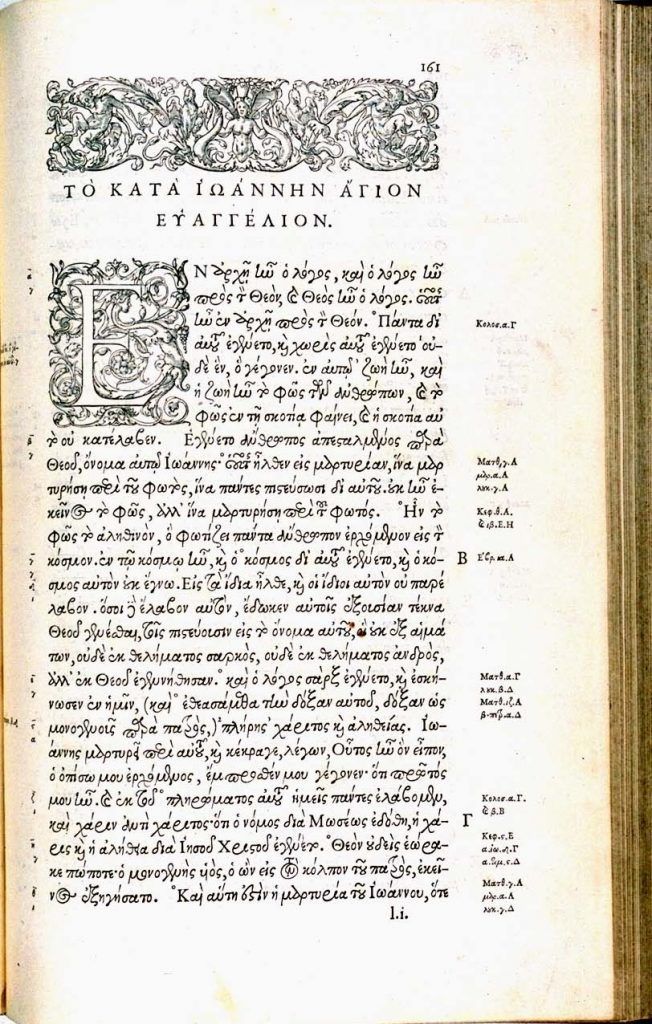 161
ΤΟ ΚΑΤΑ ΙΩΑΝΝΗΝ ΑΓΙΟΝ
ΕΥΑΓΓΕΛΙΟΝ.
ΕΝ ἀρχῇ ἦν ὁ λόγος, καὶ ὁ λόγος ἦν
πρὸς τὸν Θεόν, καὶ Θεὸς ἦν ὁ λόγος. οὗτος
ἦν ἐν ἀρχῇ πρὸς τὸν Θεόν. Πάντα δι
αὐτοῦ ἐγένετο, καὶ χωρὶς αὐτοῦ ἐγένετο οὐ-
δὲ ἓν, ὃ γέγονεν. ἐν αὐτῷ ζωὴ ἦν, καὶ
ἡ ζωὴ ἦν τὸ φῶς τῶν ἀνθρώπων, καὶ τὸ
φῶς ἐν τῇ σκοτίᾳ φαίνει, καὶ ἡ σκοτία αὐ
τὸ οὐ κατέλαβεν. Ἐγένετο ἄνθρωπος ἀπεσταλμένος παρὰ
Θεοῦ, ὄνομα αὐτῷ Ἰωάννης· οὗτος ἦλθεν εἰς μαρτυρίαν, ἵνα μαρ
τυρήσῃ περὶ τοῦ φωτὸς, ἵνα πάντες πιστεύσωσι δι αὐτοῦ. οὐκ ἦν ἐ-
κεῖνος τὸ φῶς, ἀλλ' ἵνα μαρτυρήσῃ περὶ τοῦ φωτός. Ἦν τὸ
φῶς τὸ ἀληθινὸν, ὃ φωτίζει πάντα ἄνθρωπον ἐρχόμενον εἰς τὸν
κόσμον. ἐν τῷ κόσμῳ ἦν, καὶ ὁ κόσμος δι αὐτοῦ ἐγένετο, καὶ ὁ κό-
σμος αὐτὸν οὐκ ἔγνω. Εἰς τὰ ἴδια ἦλθε, καὶ οἱ ἴδιοι αὐτὸν οὐ παρέ
λαβον. ὅσοι δὲ ἔλαβον αὐτὸν, ἔδωκεν αὐτοῖς ἐξουσίαν τέκνα
Θεοῦ γενέσθαι, τοῖς πιστεύουσιν εἰς τὸ ὄνομα αὐτοῦ, οἳ οὐκ ἐξ αἱμά
των, οὐδὲ ἐκ θελήματος σαρκὸς, οὐδὲ ἐκ θελήματος ἀνδρὸς,
ἀλλ' ἐκ Θεοῦ ἐγεννήθησαν. καὶ ὁ λόγος σὰρξ ἐγένετο, καὶ ἐσκή-
νωσεν ἐν ἡμῖν, (καὶ ἐθεασάμεθα τὴν δόξαν αὐτοῦ, δόξαν ὡς
μονογενοῦς παρὰ πατρὸς,) πλήρης χάριτος καὶ ἀληθείας. Ἰω-
άννης μαρτυρεῖ περὶ αὐτοῦ, καὶ κέκραγε, λέγων, Οὗτος ἦν ὃν εἶπον,
ὁ ὀπίσω μου ἐρχόμενος, ἔμπροσθέν μου γέγονεν· ὅτι πρῶτός
μου ἦν. καὶ ἐκ τοῦ πληρώματος αὐτοῦ ἡμεῖς πάντες ἐλάβομεν,
καὶ χάριν ἀντὶ χάριτος· ὅτι ὁ νόμος διὰ Μωσέως ἐδόθη, ἡ χά-
ρις καὶ ἡ ἀλήθεια διὰ Ἰησοῦ Χριστοῦ ἐγένετο. Θεὸν οὐδεὶς ἑώρα-
κε πώποτε· ὁ μονογενὴς υἱὸς, ὁ ὢν εἰς τὸν κόλπον τοῦ πατρὸς, ἐκεῖ-
νος ἐξηγήσατο. Καὶ αὕτη ἐστὶν ἡ μαρτυρία τοῦ Ἰωάννου, ὅτε
l.i.
Κολοσ.α.Γ
Ματθ.γ.Α
μαρ.α.Α
λυκ.γ.Α
Κεφ.θ.Α.
καὶ ιβ.Ε.Η
Β
Εβρ.ια.Α
Ματθ.α.Γ
λυκ.β.Δ
Ματθ.ιζ.Α
β·πέτρ.α.Δ
Κολοσ.α.Γ.
καὶ β.Β
Γ
Κεφ.ς.Ε
α.ιω.δ.Γ
α.τιμ.ς.Δ
Ματθ.γ.Α
μαρ.α.Α
λυκ.γ.Δ